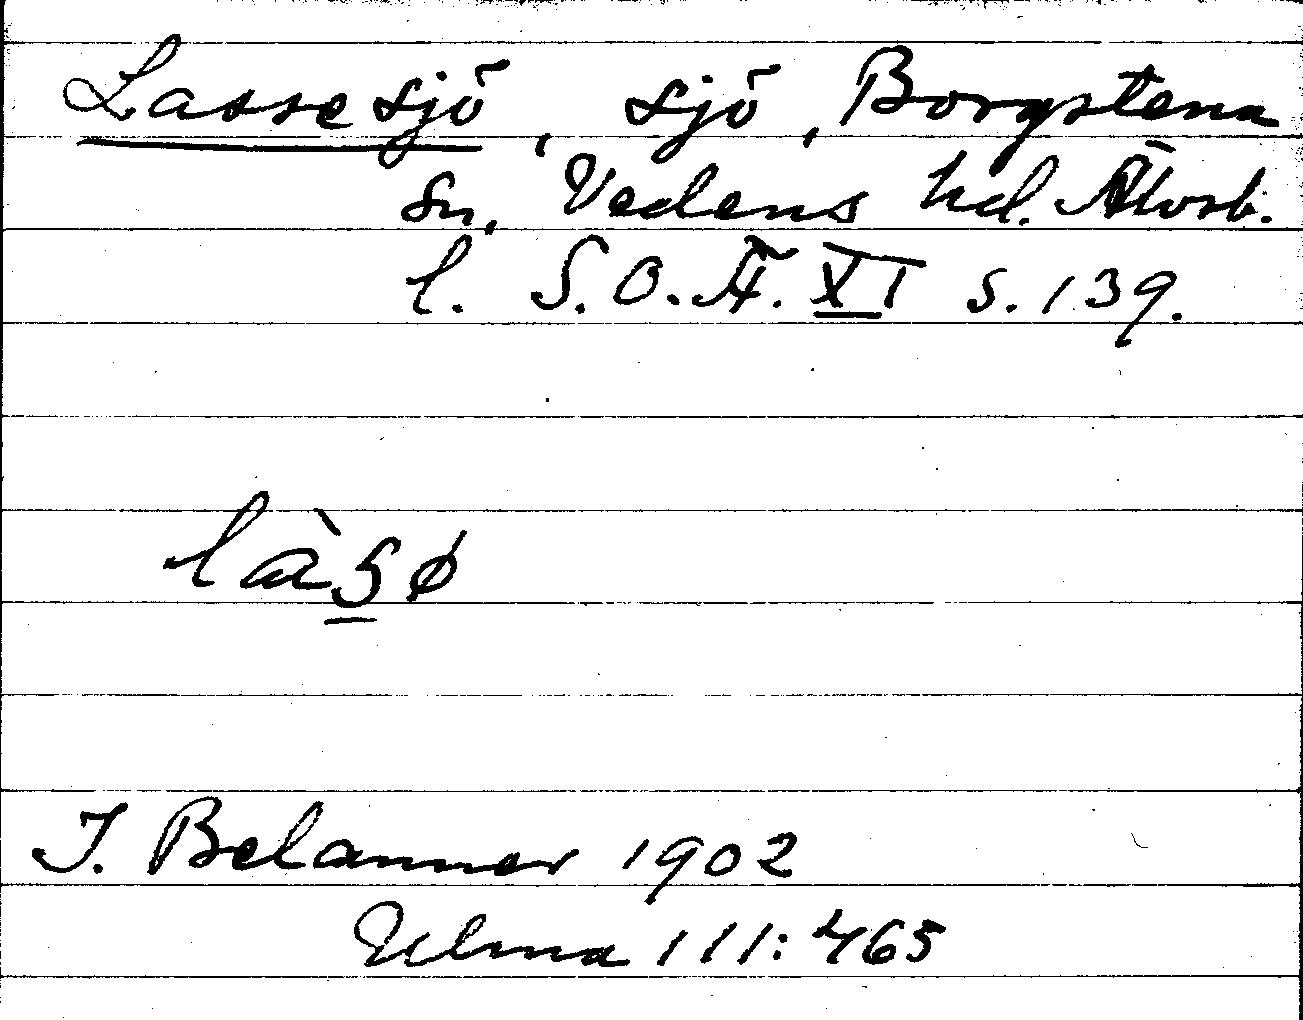 Lassesjö, sjö, Borgstena
sn, Vedens hd. Älvsb.
l. S.O.Ä. XI s. 139.
làʂø
J. Belanner 1902
Ulma 111:465